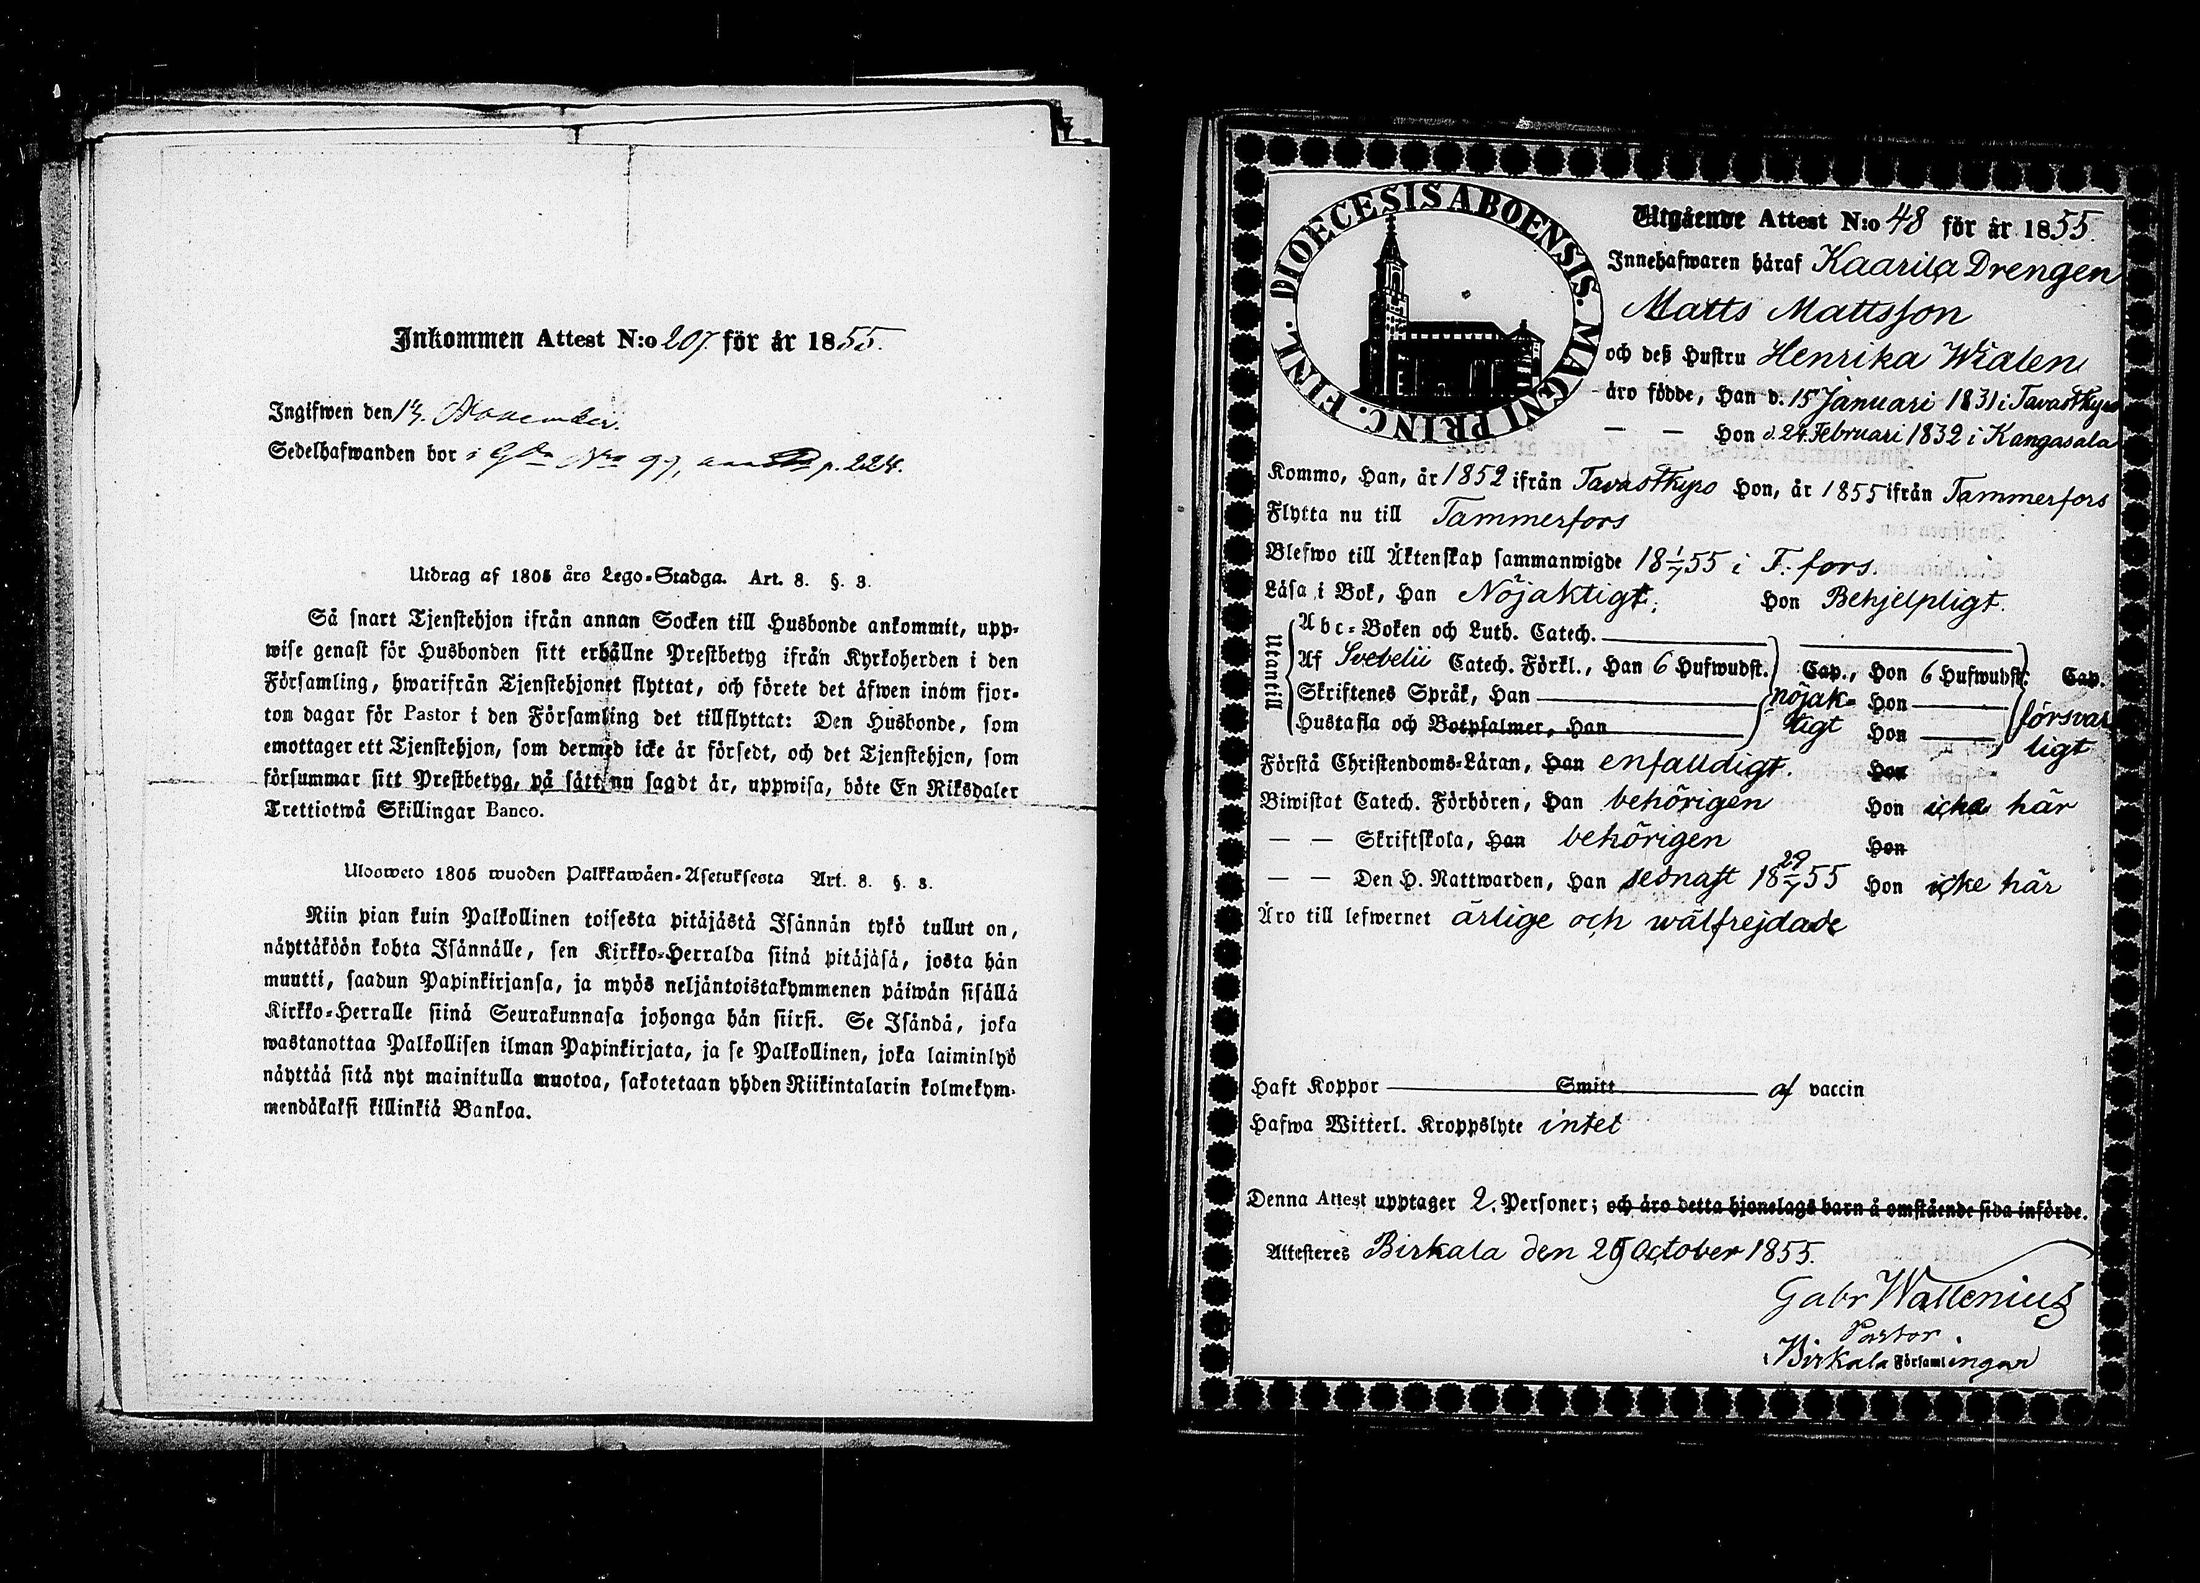 Inkommen Attest N:o 207. för år 1855.
Ingifwen den 14. November.
Sedelhafwanden bor i Gdn Nro 97, p. 224.
Utdrag af 1805 års Lego-Stadga. Art. 8. §. 3.
Så snart Tjenstehjon ifrån annan Socken till Husbonde ankommit, upp-
wise genast för Husbonden sitt erhållne Prestbetyg ifrån Kyrkoherden i den
Församling, hwarifrån Tjenstehjonet flyttat, och förete det äfwen inom fjor-
ton dagar för Pastor i den Församling det tillflyttat: Den Husbonde, som
emottager ett Tjenstehjon, som dermed icke är försedt, och det Tjenstehjon, som
försummar sitt Prestbetyg, på sätt nu sagdt är, uppwisa, böte En Riksdaler
Trettiotwå Skillingar Banco.
Ulosweto 1805 wuoden Palkkawäen-Asetuksesta Art. 8. §. 3.
Niin pian kuin Palkollinen toisesta pitäjästä Isännän tykö tullut on,
näyttäköön kohta Isännälle, sen Kirkko-Herralda siinä pitäjäsä, josta hän
muutti, saadun Papinkirjansa, ja myös neljäntoistakymmenen päiwän sisällä
Kirkko-Herralle siinä Seurakunnasa johonga hän siirsi. Se Isändä, joka
wastanottaa Palkollisen ilman Papinkirjata, ja se Palkollinen, joka laiminlyö
näyttää sitä nyt mainitulla muotoa, sakotetaan yhden Riikintalarin kolmekym-
mendäkaksi killinkiä Bankoa.
DIOECESIS ABOENSIS. MAGNI PRINC. FINL.
Utgående Attest N:o 48 för år 1855.
Innehafwaren häraf Kaarila Drengen
Matts Mattsson
och deß Hustru Henrika Wialen
äro födde, Han d. 15 Januari 1831 i Tavastkyro
— — Hon d. 24 Februari 1832 i Kangasala
Kommo, Han, år 1852 ifrån Tavastkyro Hon, år 1855 ifrån Tammerfors
Flytta nu till Tammerfors
Blefwo till Äktenskap sammanwigde 18 1/7 55 i T. fors.
Läsa i Bok, Han Nöjaktigt; Hon Behjelpligt.
Utantill
Abc-Boken och Luth. Catech.
Af Svebelii Catech. Förkl., Han 6 Hufwudst. Cap., Hon 6 Hufwudst. Cap.
Skriftenes Språk, Han nöjak- Hon försvar
Hustafla och Botpsalmer, Han tigt Hon ligt
Förstå Christendoms-Läran, Han enfalldigt. Hon
Biwistat Catech. Förhören, Han behörigen Hon icke här
— — Skriftskola, Han behörigen Hon
— — Den H. Nattwarden, Han sednast 18 29/7 55 Hon icke här
Äro till lefwernet ärlige och wälfrejdade
Haft Koppor Smitt af vaccin
Hafwa Witterl. Kroppslyte intet
Denna Attest upptager 2. Personer; och äro detta hjonelags barn å omstående sida införde.
Attesteres Birkala den 25 October 1855.
Gabr Wallenius
Pastor
i Birkala Församlingar